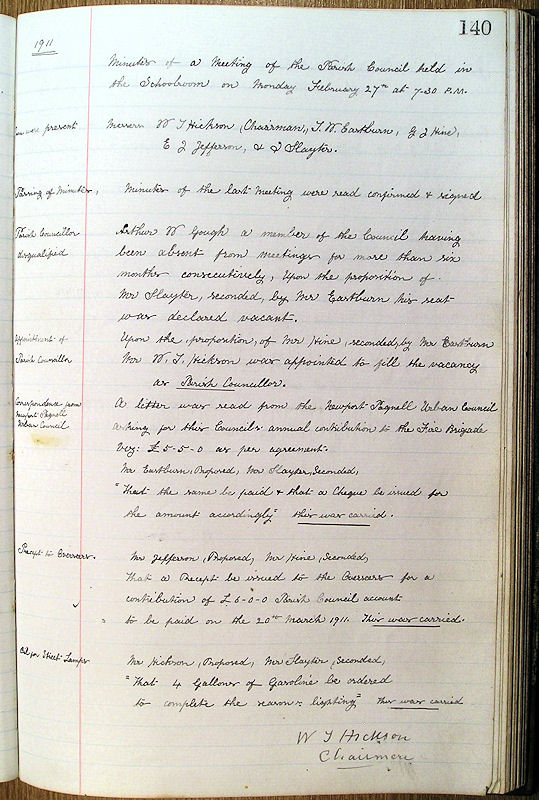 140
1911
Minutes of a Meeting of the Parish Council held in
the Schoolroom on Monday February 27th at 7-30 P.M.
were present
Messrs W T Hickson (Chairman), T. W. Eastburn, G J Hine,
E J Jefferson, & J Slayter.
Passing of Minutes,
Minutes of the last Meeting were read confirmed & signed
Parish Councillor
disqualified
Arthur W Gough a member of the Council having
been absent from meetings for more than six
months consecutively, Upon the proposition of
Mr Slayter, seconded, by Mr Eastburn his seat
was declared vacant.
Appointment of
Parish Councillor
Upon the, proposition, of Mr Hine, seconded, by Mr Eastburn
Mr W. T. Hickson was appointed to fill the vacancy
as Parish Councillor.
Correspondence from
Newport Pagnell
Urban Council
A letter was read from the Newport Pagnell Urban Council
asking for this Council's annual contribution to the Fire Brigade
£5-5-0 as per agreement.
Mr Eastburn, Proposed, Mr Slayter, Seconded,
"That the same be paid & that a Cheque be issued for
the amount accordingly" this was carried.
Precept to Overseers.
Mr Jefferson, Proposed, Mr Hine, Seconded,
That a Precept be issued to the Overseers for a
contribution of £6-0-0 Parish Council account
to be paid on the 20th March 1911. This was carried.
Oil for Street Lamps
Mr Hickson, Proposed, Mr Slayter, Seconded,
"That 4 Gallons of Gasoline be ordered
to complete the season's lighting" this was carried
W T Hickson
Chairman